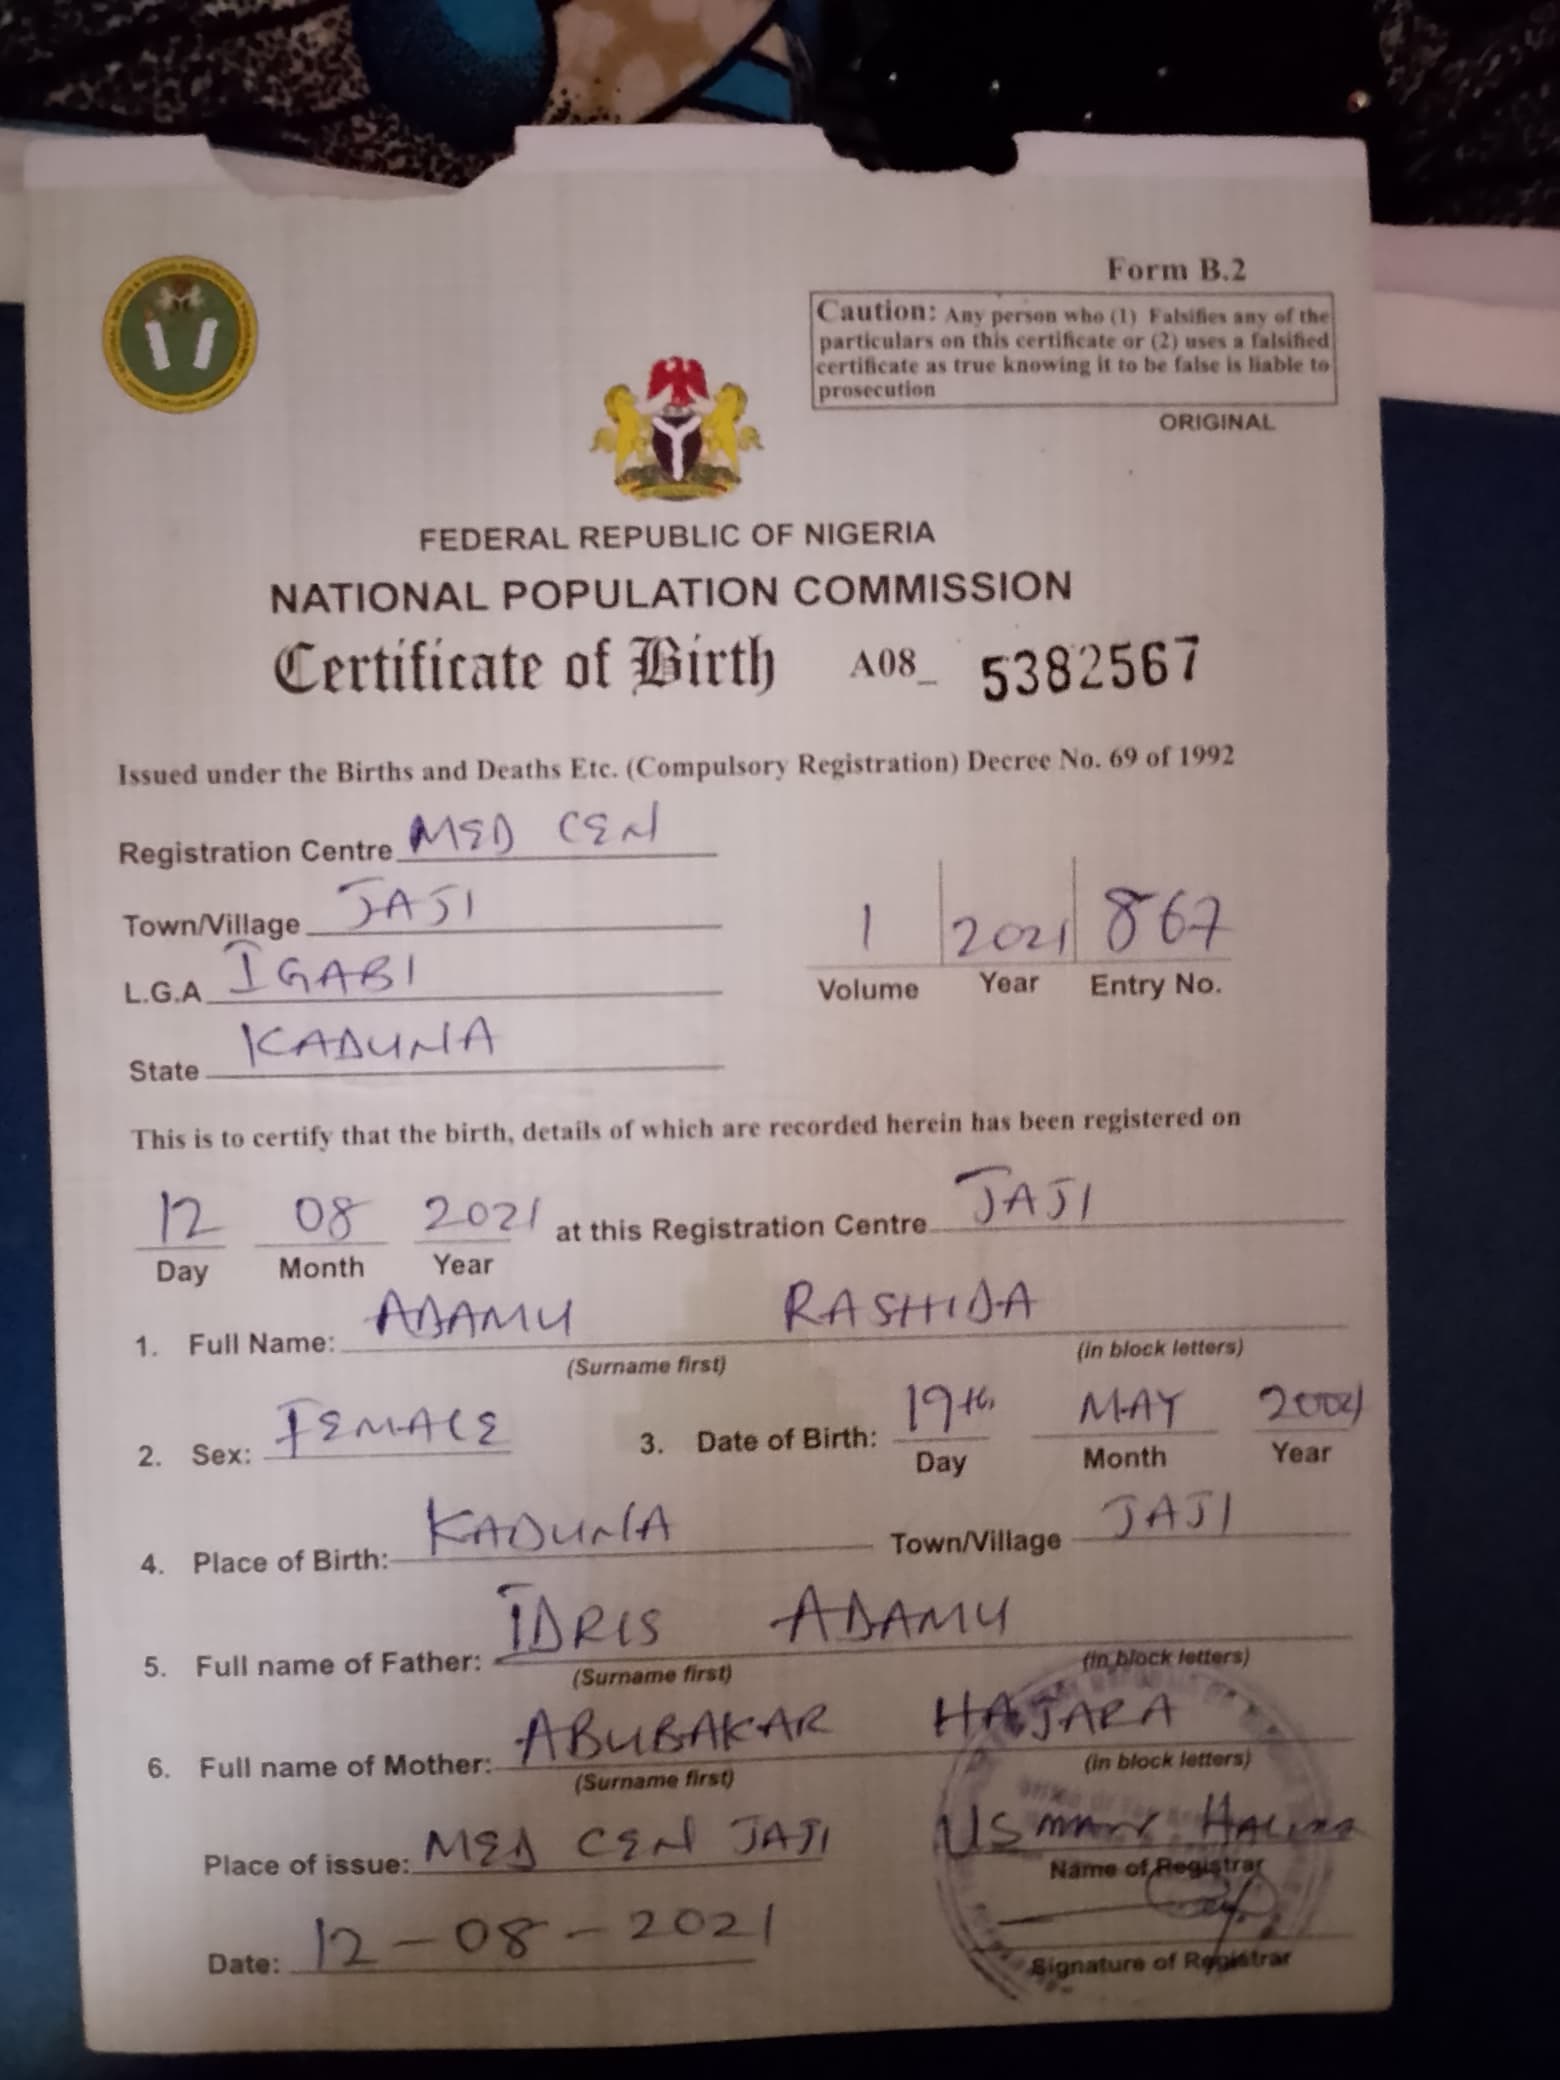 Form B.2
Caution: Any person who (1) Falsifies any of the
particulars on this certificate or (2) uses a falsified
certificate as true knowing it to be false is liable to
prosecution
ORIGINAL
FEDERAL REPUBLIC OF NIGERIA
NATIONAL POPULATION COMMISSION
Certificate of Birth A08_ 5382567
Issued under the Births and Deaths Etc. (Compulsory Registration) Decree No. 69 of 1992
Registration Centre MED CEN
Town/Village JAJI
L.G.A IGABI
State KADUNA
1 2021 867
Volume Year Entry No.
This is to certify that the birth, details of which are recorded herein has been registered on
12 08 2021 at this Registration Centre JAJI
Day Month Year
1. Full Name: ADAMU RASHIDA
(Surname first) (in block letters)
2. Sex: FEMALE 3. Date of Birth: 19th MAY
Day Month Year
4. Place of Birth: KADUNA Town/Village JAJI
5. Full name of Father: IDRIS ADAMU
(Surname first) (in block letters)
6. Full name of Mother: ABUBAKAR HAJARA
(Surname first) (in block letters)
Place of issue: MED CEN JAJI USMAN
Name of Registrar
Date: 12-08-2021
Signature of Registrar